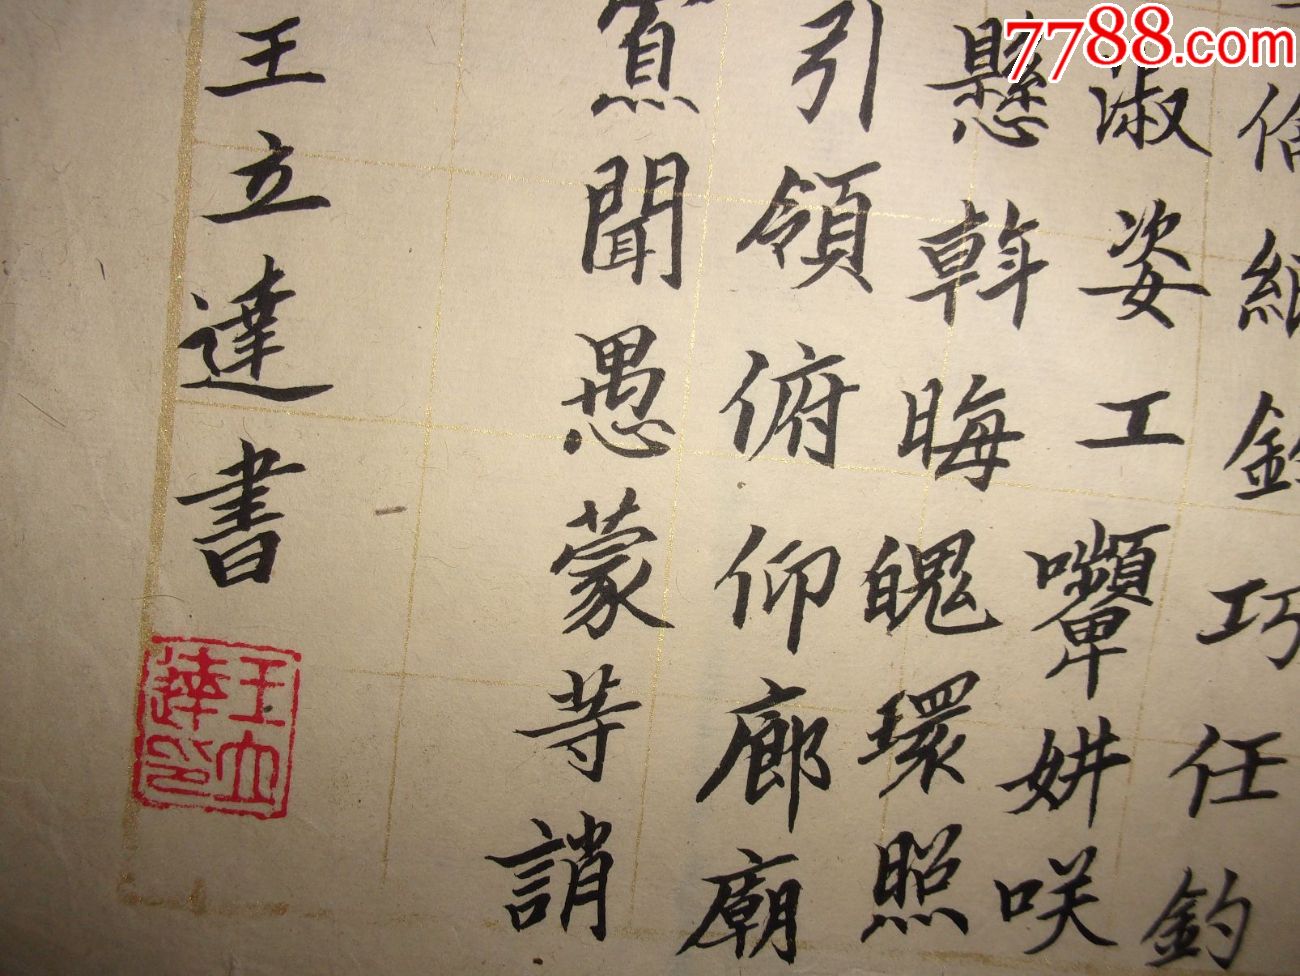 7788.com
倫紙鈞巧任釣
淑姿工顰妍咲
懸斡晦魄環照
引領俯仰廊廟
寡聞愚蒙等誚
王立達書
王立達印